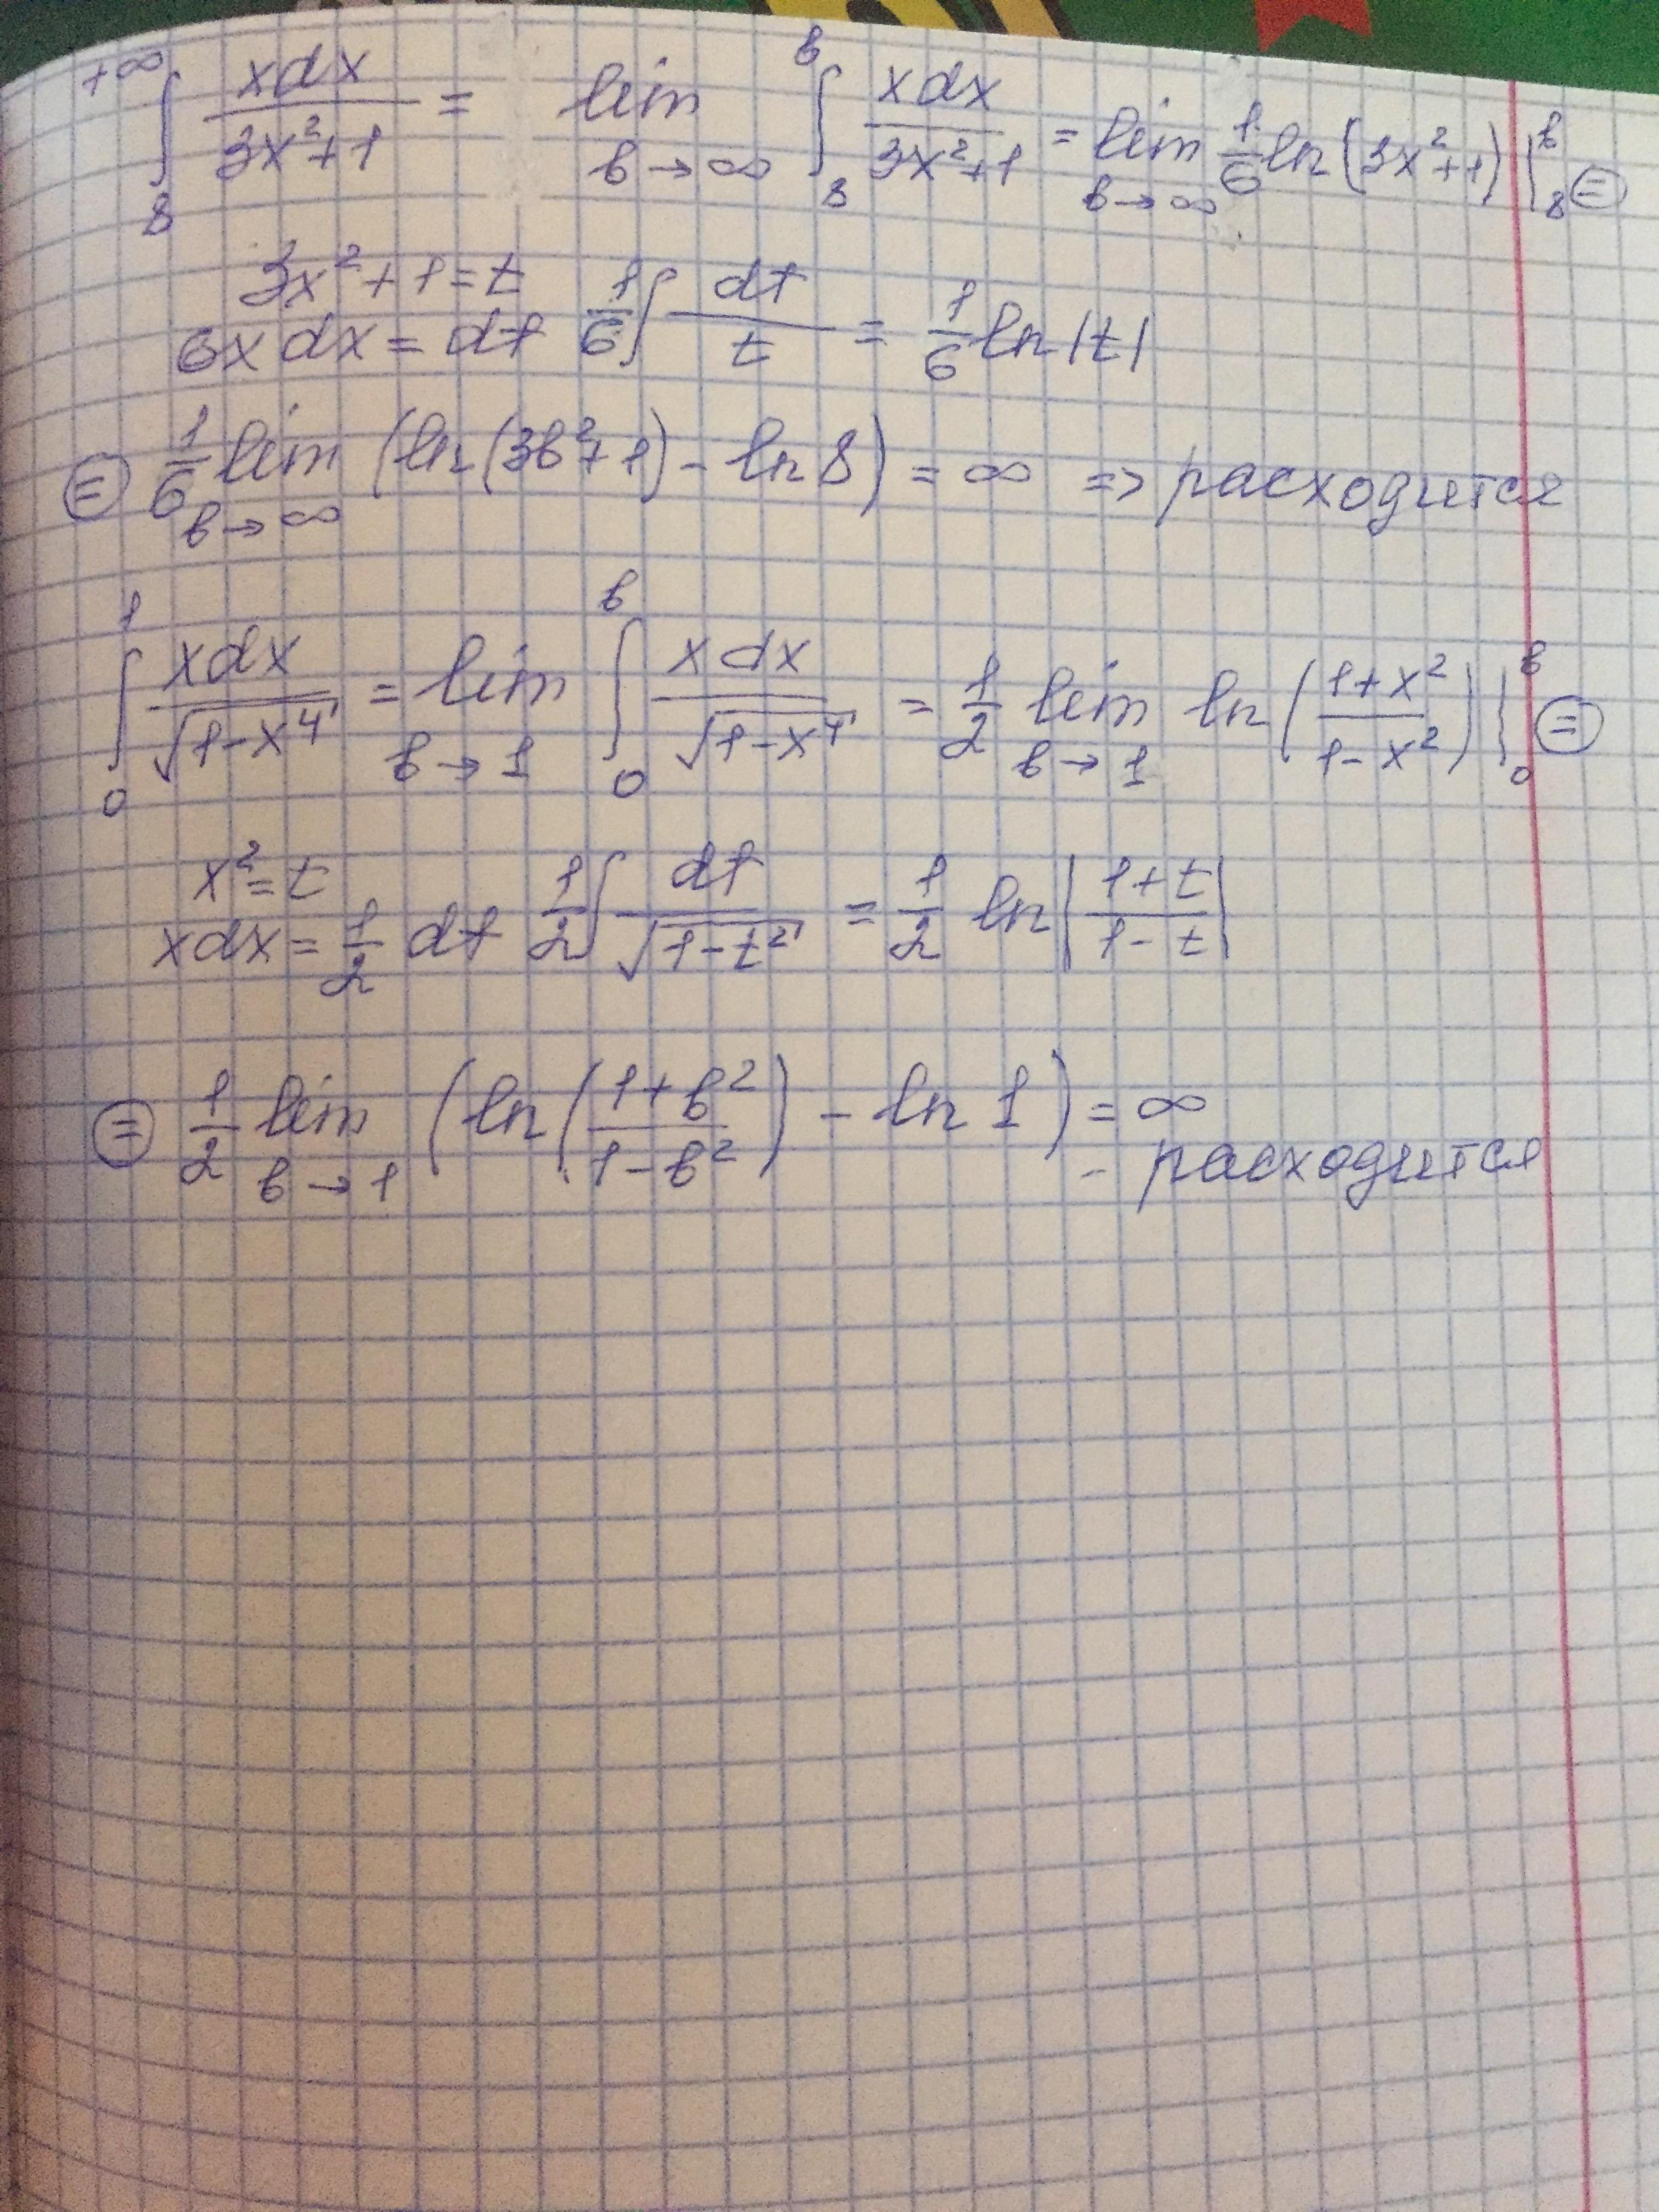 ∫₈^{+∞} xdx/(3x²+1) = lim_{b→∞} ∫₈^b xdx/(3x²+1) = lim_{b→∞} 1/6 ln(3x²+1)|₈^b ⊜
3x²+1=t
6x dx = dt 1/6 ∫ dt/t = 1/6 ln|t|
⊜ 1/6 lim_{b→∞} (ln(3b²+1) - ln 8) = ∞ => расходится
∫₀¹ xdx/√(1-x⁴) = lim_{b→1} ∫₀^b xdx/√(1-x⁴) = 1/2 lim_{b→1} ln((1+x²)/(1-x²))|₀^b ⊜
x²=t
xdx = 1/2 dt 1/2 ∫ dt/√(1-t²) = 1/2 ln|(1+t)/(1-t)|
⊜ 1/2 lim_{b→1} (ln((1+b²)/(1-b²)) - ln 1) = ∞
- расходится